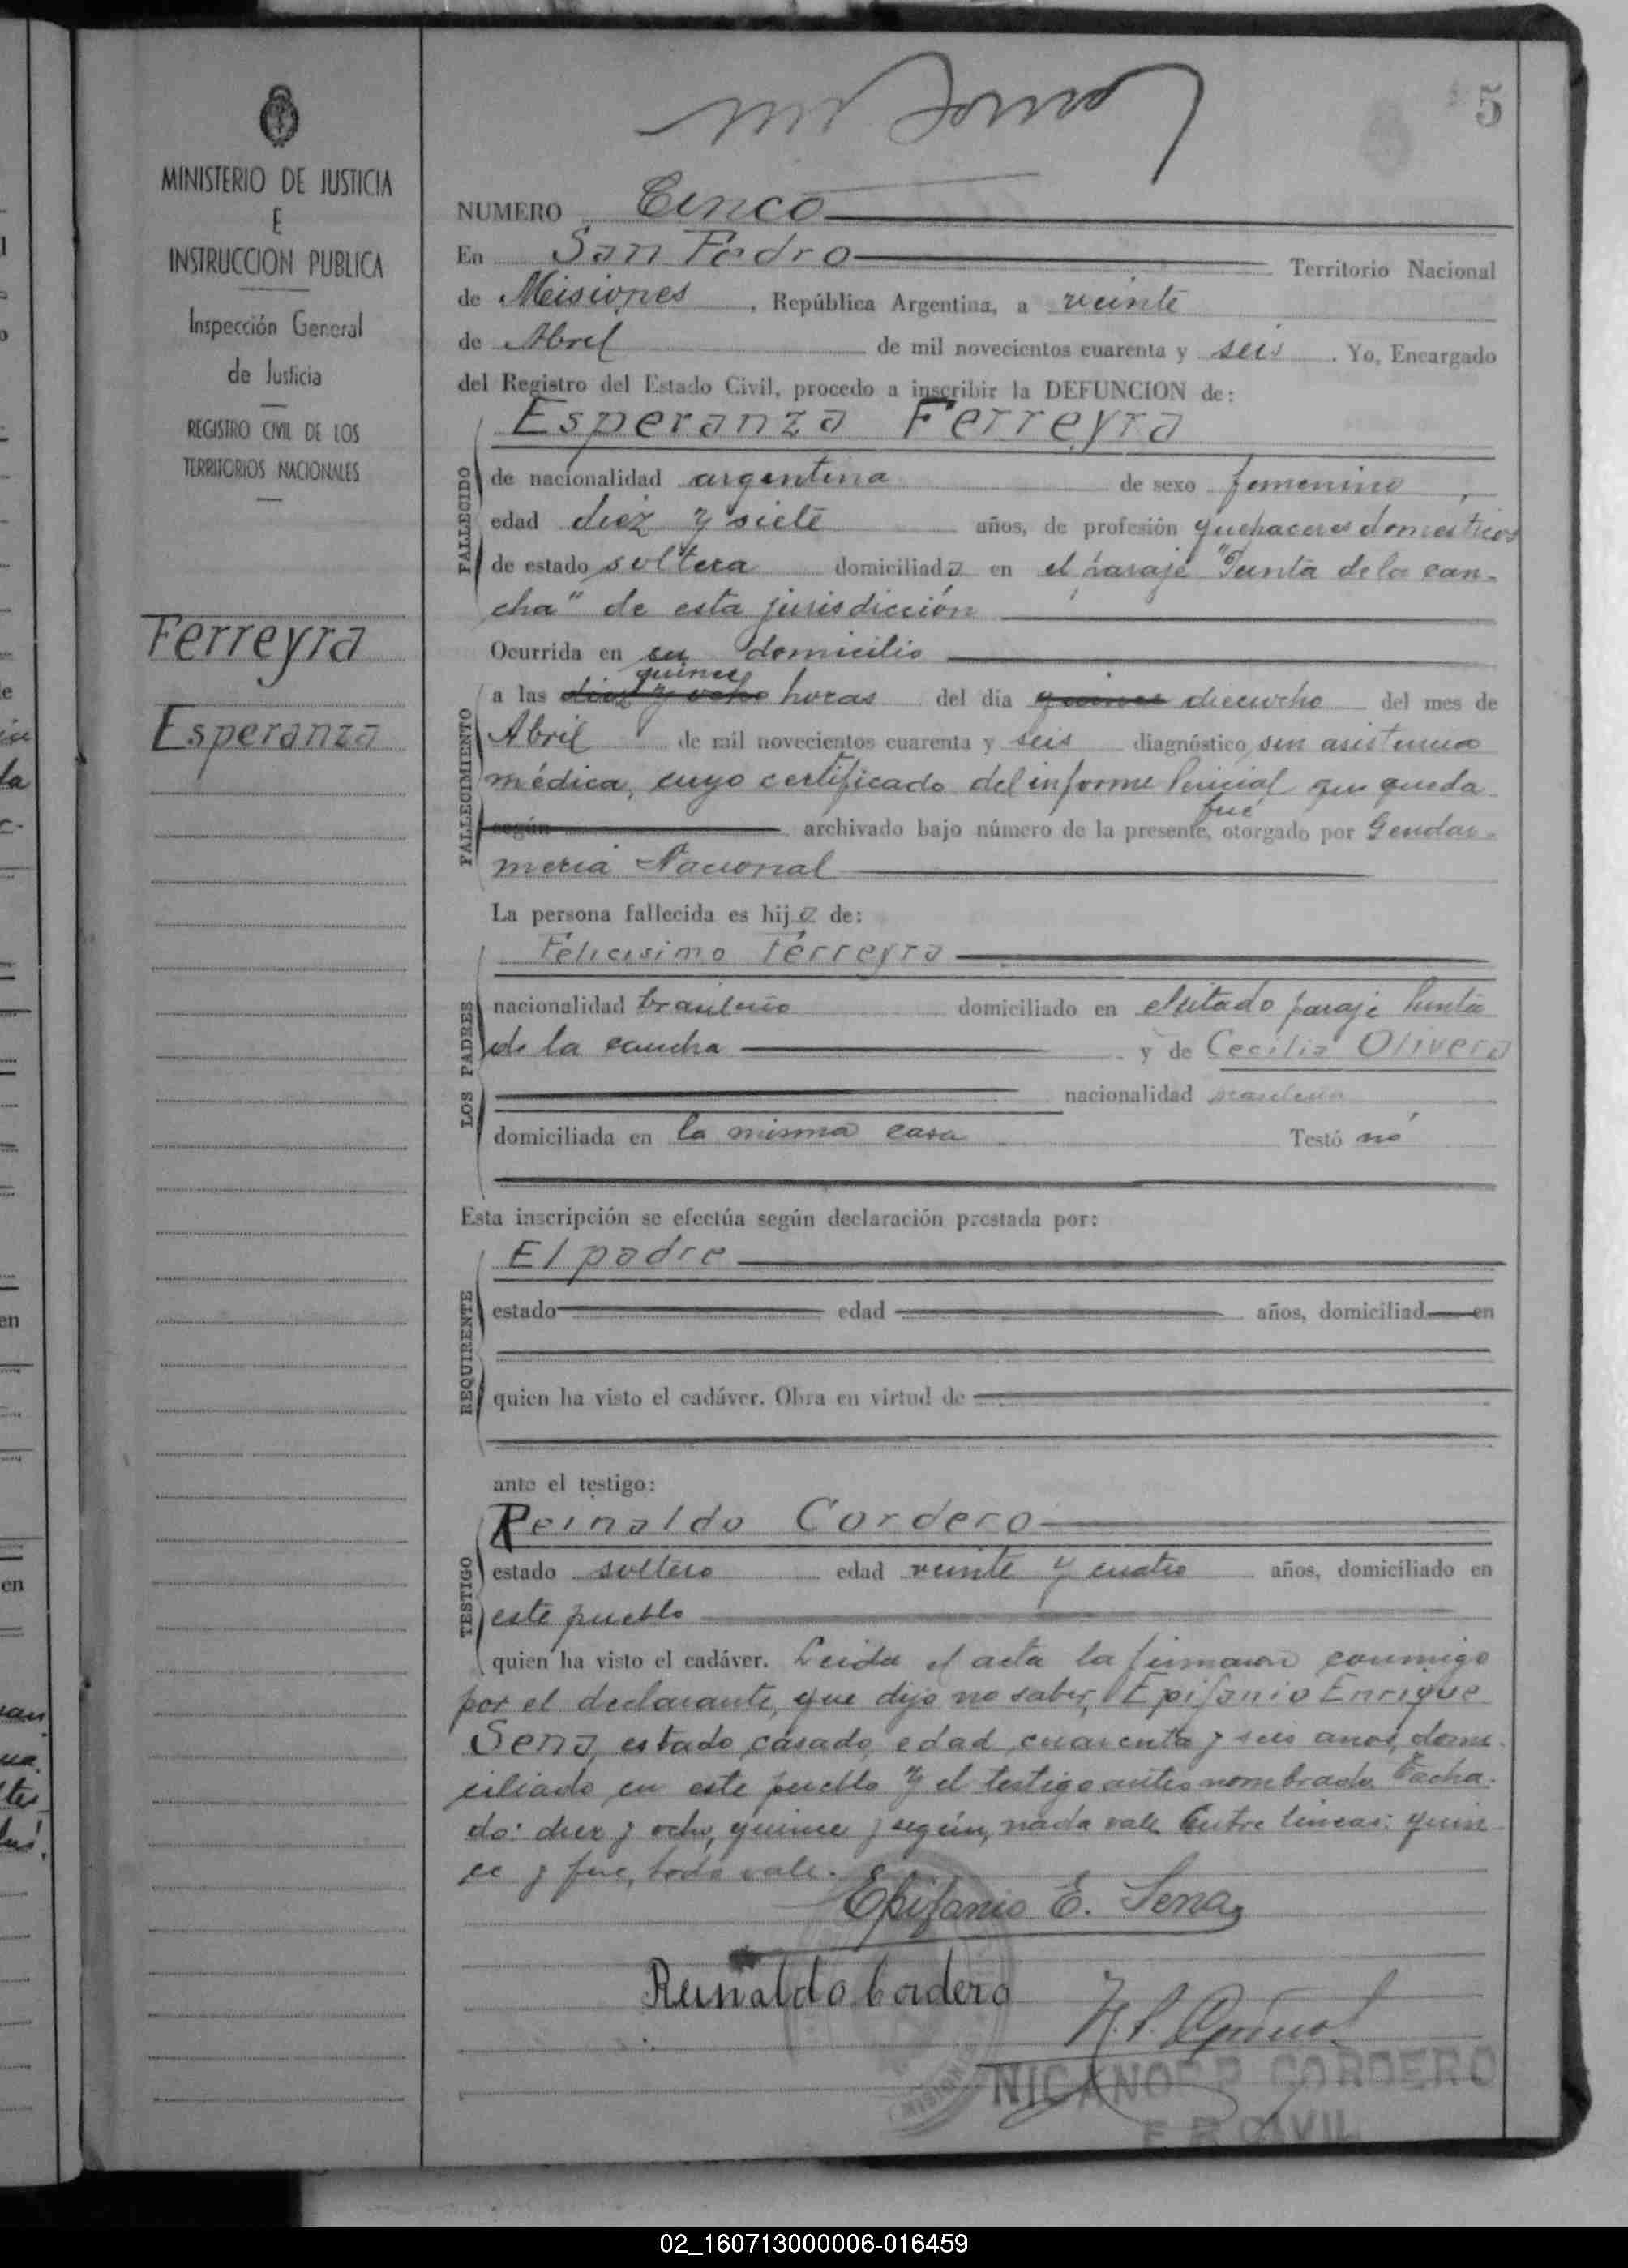 5
MINISTERIO DE JUSTICIA
E
INSTRUCCION PUBLICA
Inspección General
de Justicia
REGISTRO CIVIL DE LOS
TERRITORIOS NACIONALES
Ferreyra
Esperanza
NUMERO Cinco
En San Pedro Territorio Nacional
de Misiones, República Argentina, a veinte
de Abril de mil novecientos cuarenta y seis. Yo, Encargado
del Registro del Estado Civil, procedo a inscribir la DEFUNCION de:
Esperanza Ferreyra
FALLECIDO
de nacionalidad argentina de sexo femenino,
edad diez y siete años, de profesión quehaceres domésticos
de estado soltera domiciliada en el paraje "Punta de la can-
cha" de esta jurisdicción
Ocurrida en su domicilio
quince
FALLECIMIENTO
a las diez y ocho horas del día quince dieciocho del mes de
Abril de mil novecientos cuarenta y seis diagnóstico sin asistencia
médica, cuyo certificado del informe Pericial que queda
fué
según archivado bajo número de la presente, otorgado por Gendar-
meria Nacional
La persona fallecida es hija de:
Felicisimo Ferreyra
LOS PADRES
nacionalidad brasileño domiciliado en el citado paraje Punta
de la cancha y de Cecilia Olivera
nacionalidad brasileña
domiciliada en la misma casa Testó no
Esta inscripción se efectúa según declaración prestada por:
El padre
REQUIRENTE
estado edad años, domiciliad en
quien ha visto el cadáver. Obra en virtud de
ante el testigo:
Reinaldo Cordero
TESTIGO
estado soltero edad veinte y cuatro años, domiciliado en
este pueblo
quien ha visto el cadáver. Leida el acta la firmaron conmigo
por el declarante, que dijo no saber, Epifanio Enrique
Sena, estado casado, edad cuarenta y seis anos, domi-
ciliado en este pueblo y el testigo antes nombrado. Tacha-
do: diez y ocho, quince y según, nada vale. Entre lineas: quin-
ce y fue, todo vale.
Epifanio E. Sena
Reinaldo Cordero
NICANOR P. CORDERO
E. R. CIVIL
MISIONES
02_160713000006-016459